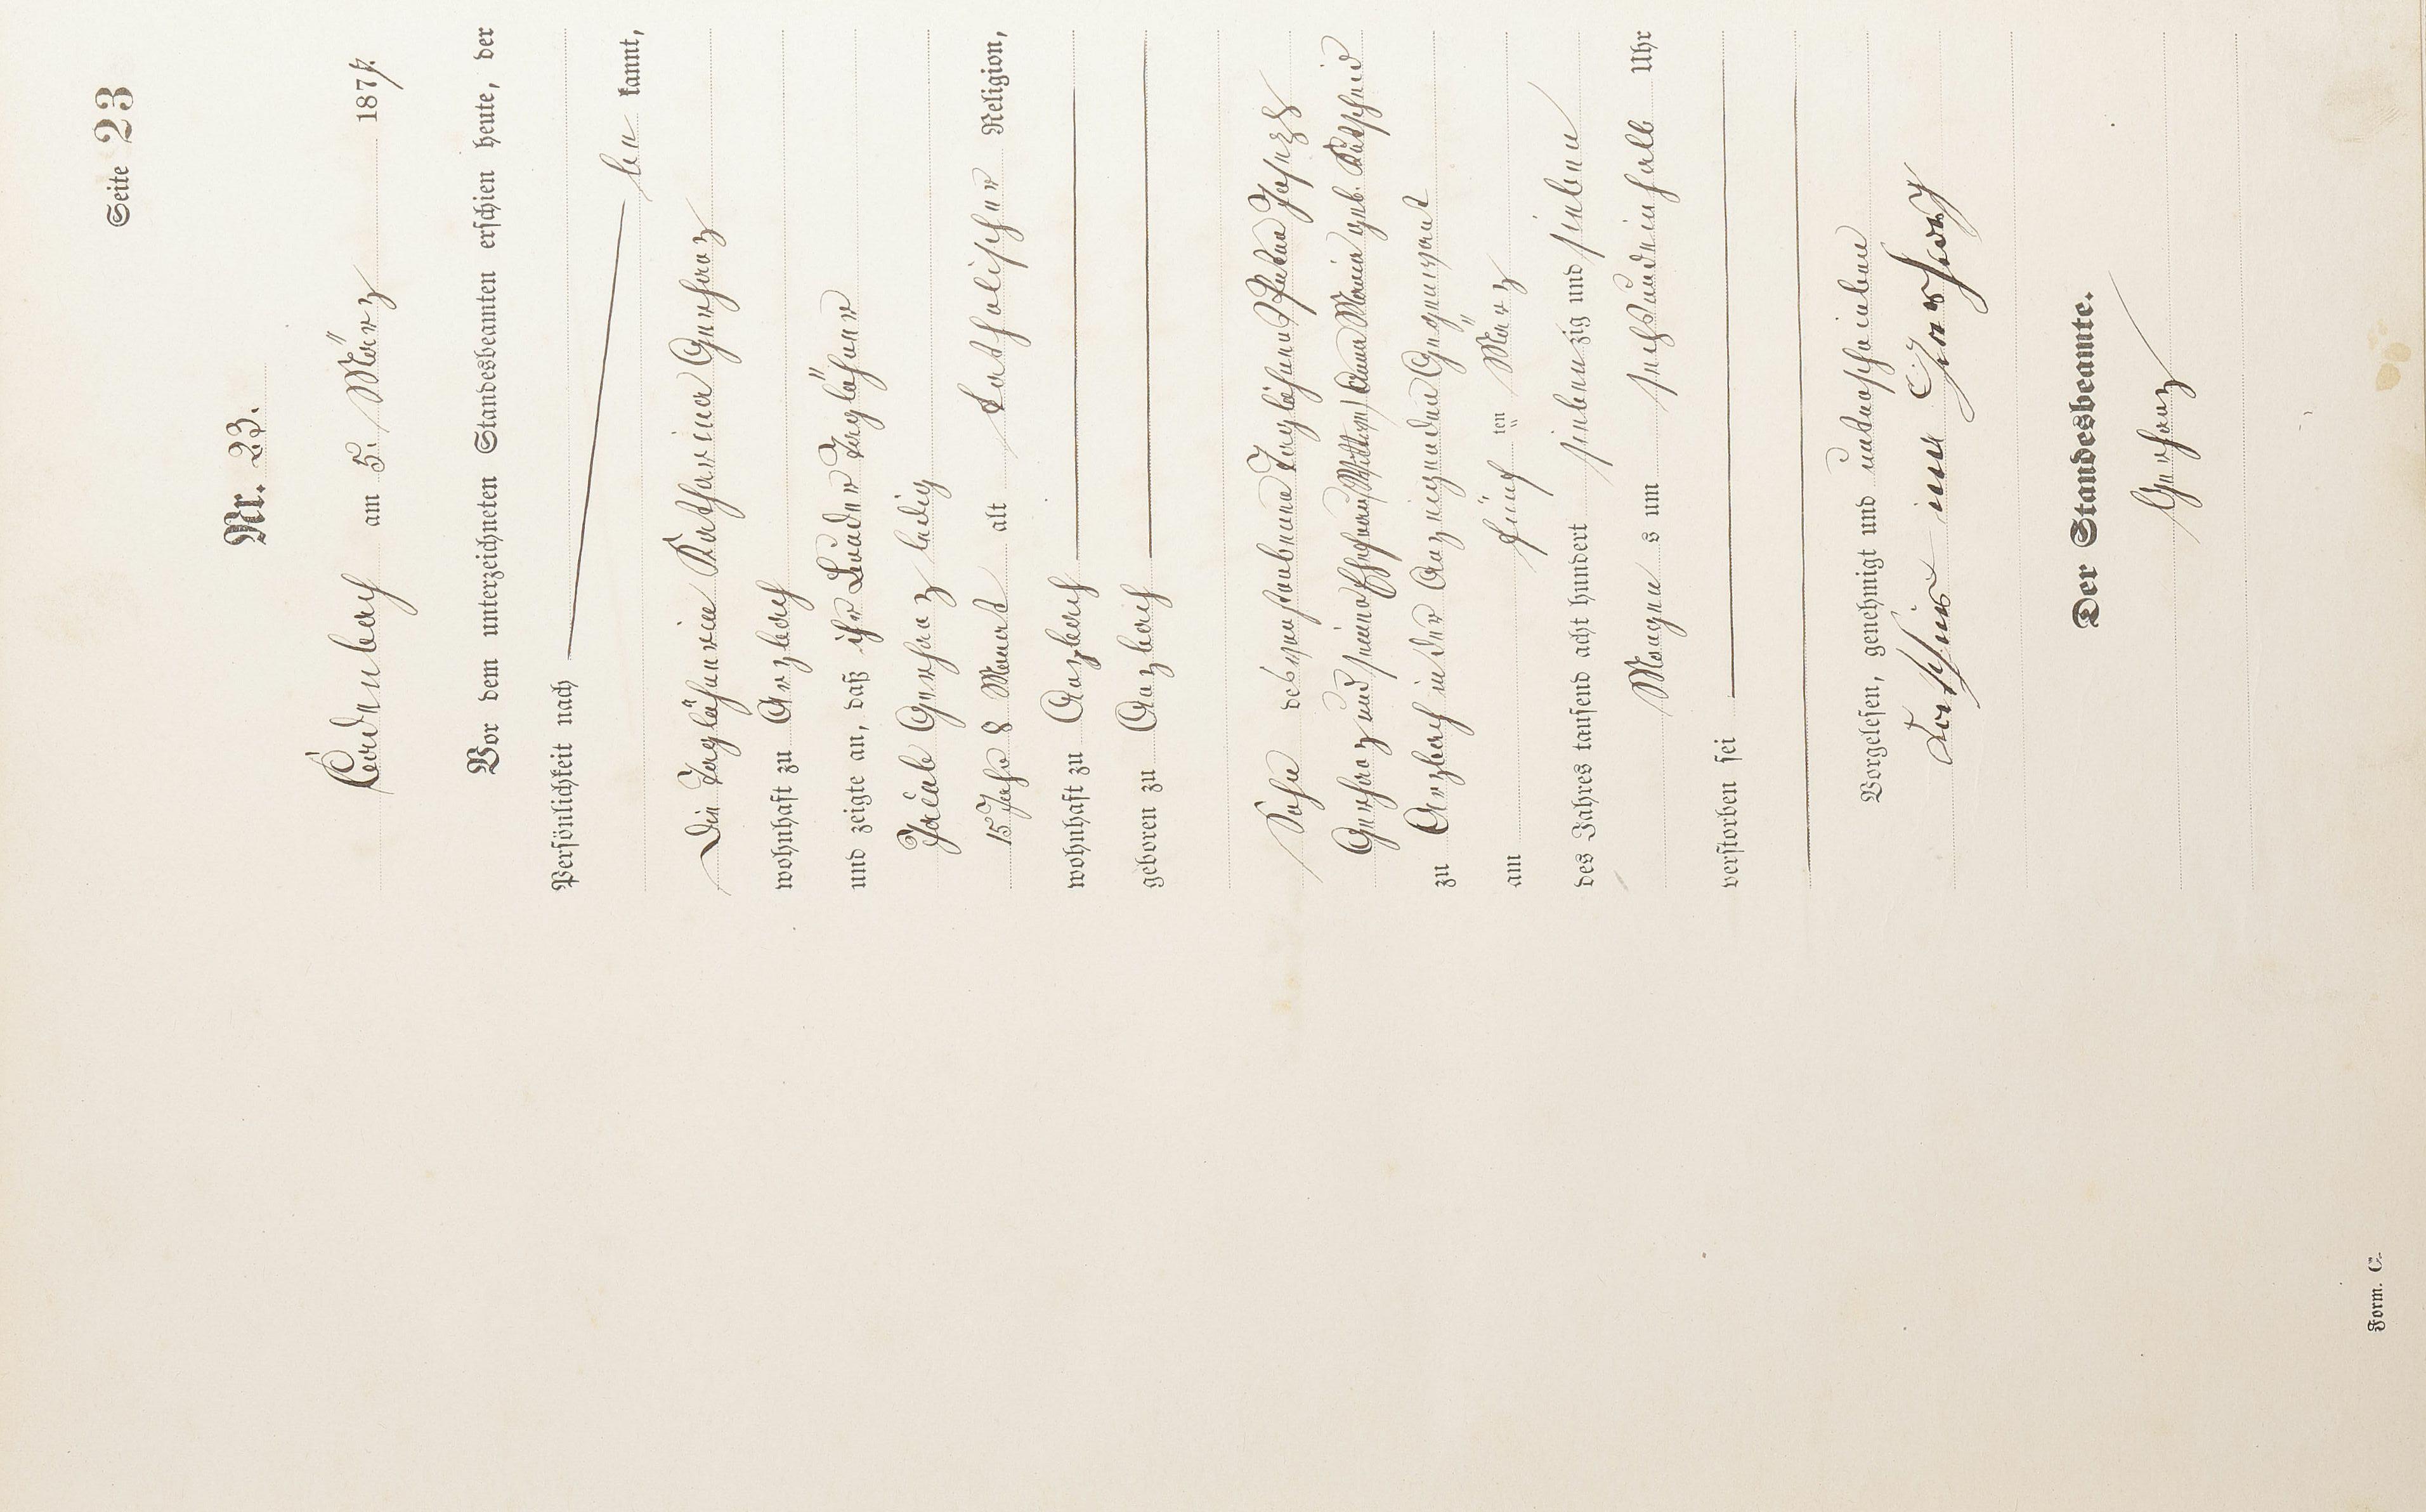 Seite 23
Nr. 23.
Cadenbach am 5. März 1877.
Vor dem unterzeichneten Standesbeamten erschien heute, der
Persönlichkeit nach
be kannt,
die Taglöhnerin Katharina Gerharz
wohnhaft zu Arzbach
und zeigte an, daß ihr Bruder Taglöhner
Jacob Gerharz ledig
15 Jahr 8 Monat alt katholischer Religion,
wohnhaft zu Arzbach
geboren zu Arzbach
Sohn des verstorbenen Taglöhners Peter Joseph
Gerharz und seiner Ehefrau Anna Maria geb.
zu Arzbach in der Anzeigenden Gegenwart
am fünf ten März
des Jahres tausend acht hundert sieben zig und sieben
Morgen s um sechs und ein halb Uhr
verstorben sei
Vorgelesen, genehmigt und unterschrieben
Der Standesbeamte.
Gerharz
Form. C.